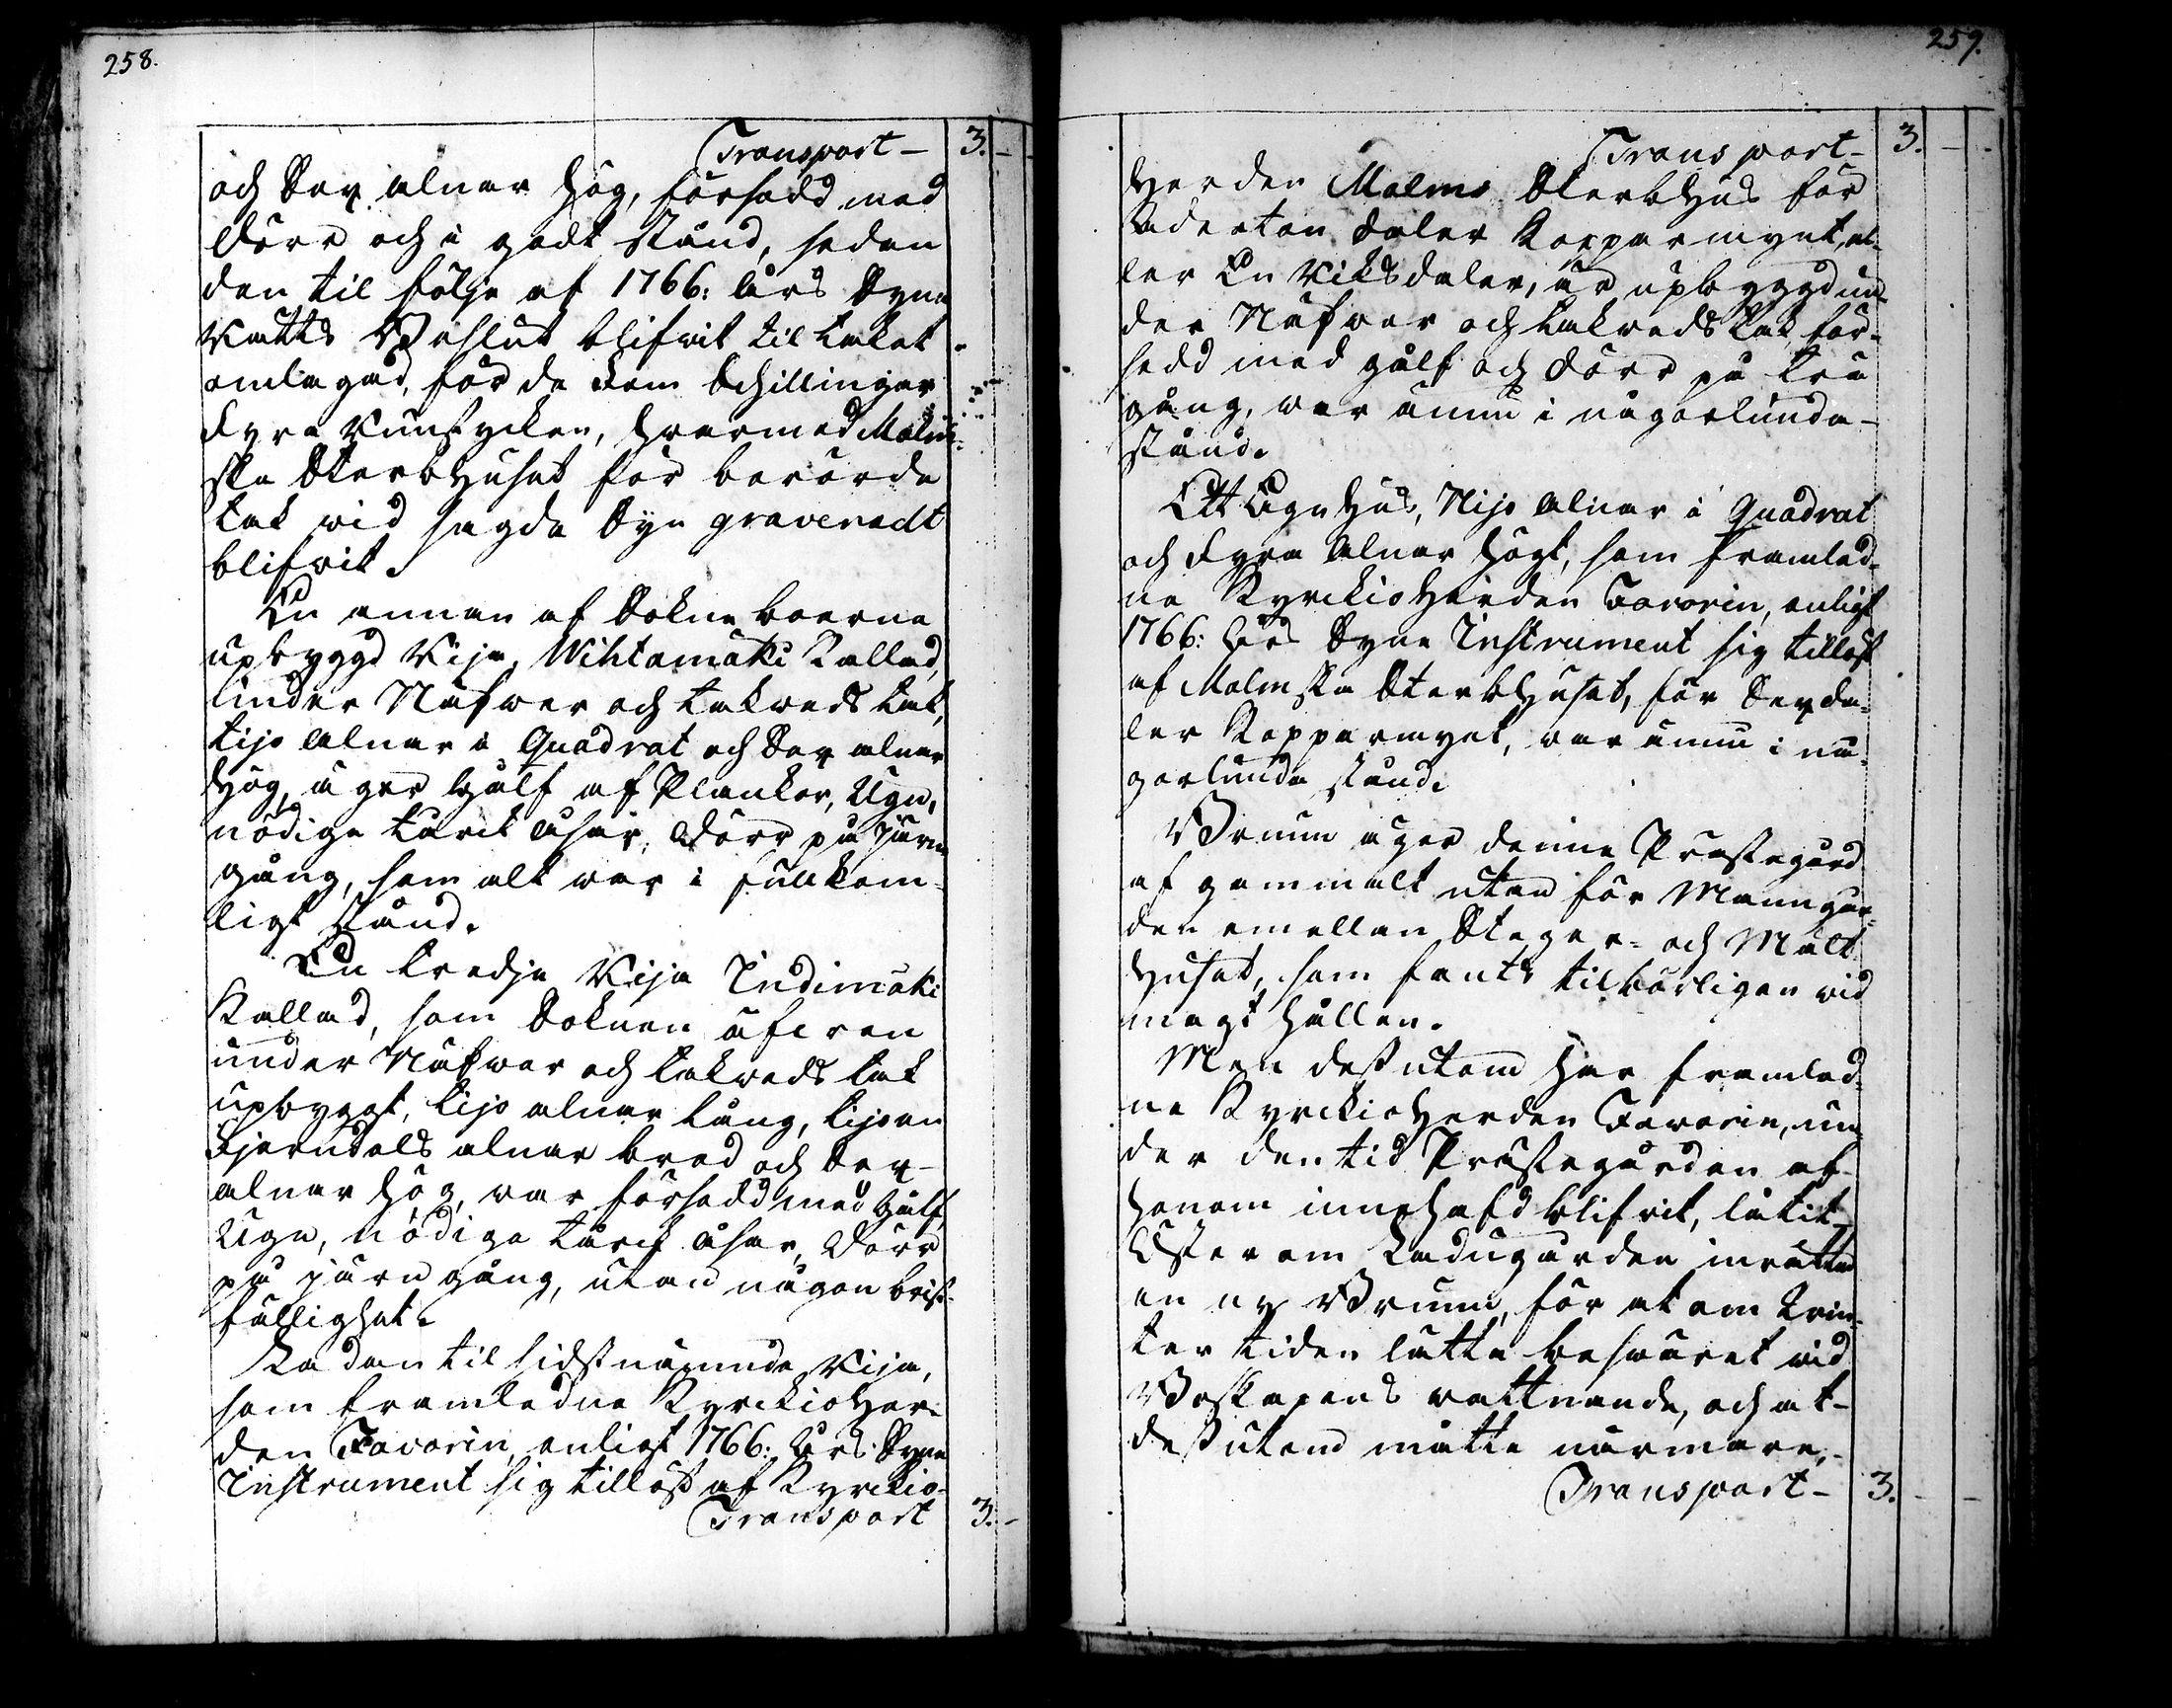 258.
Transport — 3. —
och Sex alnar hög, försedd med
dörr och i godt stånd, sedan
den til följe af 1766: års Syne
Rätts Beslut blifvit til taket
omlagad, för de Fem Schillingar
Fyra Runstycken, hvarmed Malm-
ska Sterbhuset för berörde
tak wid sagde Syn graveradt
blifvit.
En annan af Sokneboerne
upbyggd Rija, Wihtamäki kallad,
under Näfver och takveds tak,
tijo alnar i Quadrat och Sex alnar
hög, äger golf af Plankor, Ugn,
nödige torck åsar, dörr på järn
gång, som alt war i fullkom-
ligt stånd.
En tredje Rija Indimäki
kallad, som Soknen äfven
under Näfver och takveds tak
upbyggt, tijo alnar lång, tijo en
Fjerndels alnar bred och Sex
alnar hög, var försedd med golf,
Ugn, nödige torck åsar, dörr
på järn gång, utan någon brist-
fällighet.
Ladan til sidstnämnde Rija,
som framledne Kyrckioher-
den Favorin, enligt 1766: års Syne
Instrument sig tillöst af Kyrckio-
Transport 3. —
259.
Transport — 3. —
herden Malms Sterbhus för
Aderton daler Kopparmynt, el-
ler En Riksdaler, är upbyggd un-
der Näfver och takveds tak för-
sedd med golf och dörr på trä
gång, var ännu i någorlunda
stånd.
Ett Agnhus, Nijo alnar i Quadrat
och Fyra alnar högt, som framled-
ne Kyrckioherden Favorin, enligt
1766: års Syne Instrument sig tillöst
af Malmska Sterbhuset, för Sex da-
ler Kopparmynt, var ännu i nå-
gorlunda stånd.
Brunn äger denne Prästegård
af gammalt utan för Manngår-
den emellan Steger- och Malt
huset, som fants tilbörligen vid
magt hållen.
Men dessutom har framled-
ne Kyrckioherden Favorin, un-
der den tid Prästegården af
honom innehafd blifvit, låtit
Öster om Ladugården inrätta
en ny Brunn, för at om Vin-
ter tiden lätta besväret vid
Boskapens vattnande, och at
dessutom måtte närmare,
Transport — 3. —